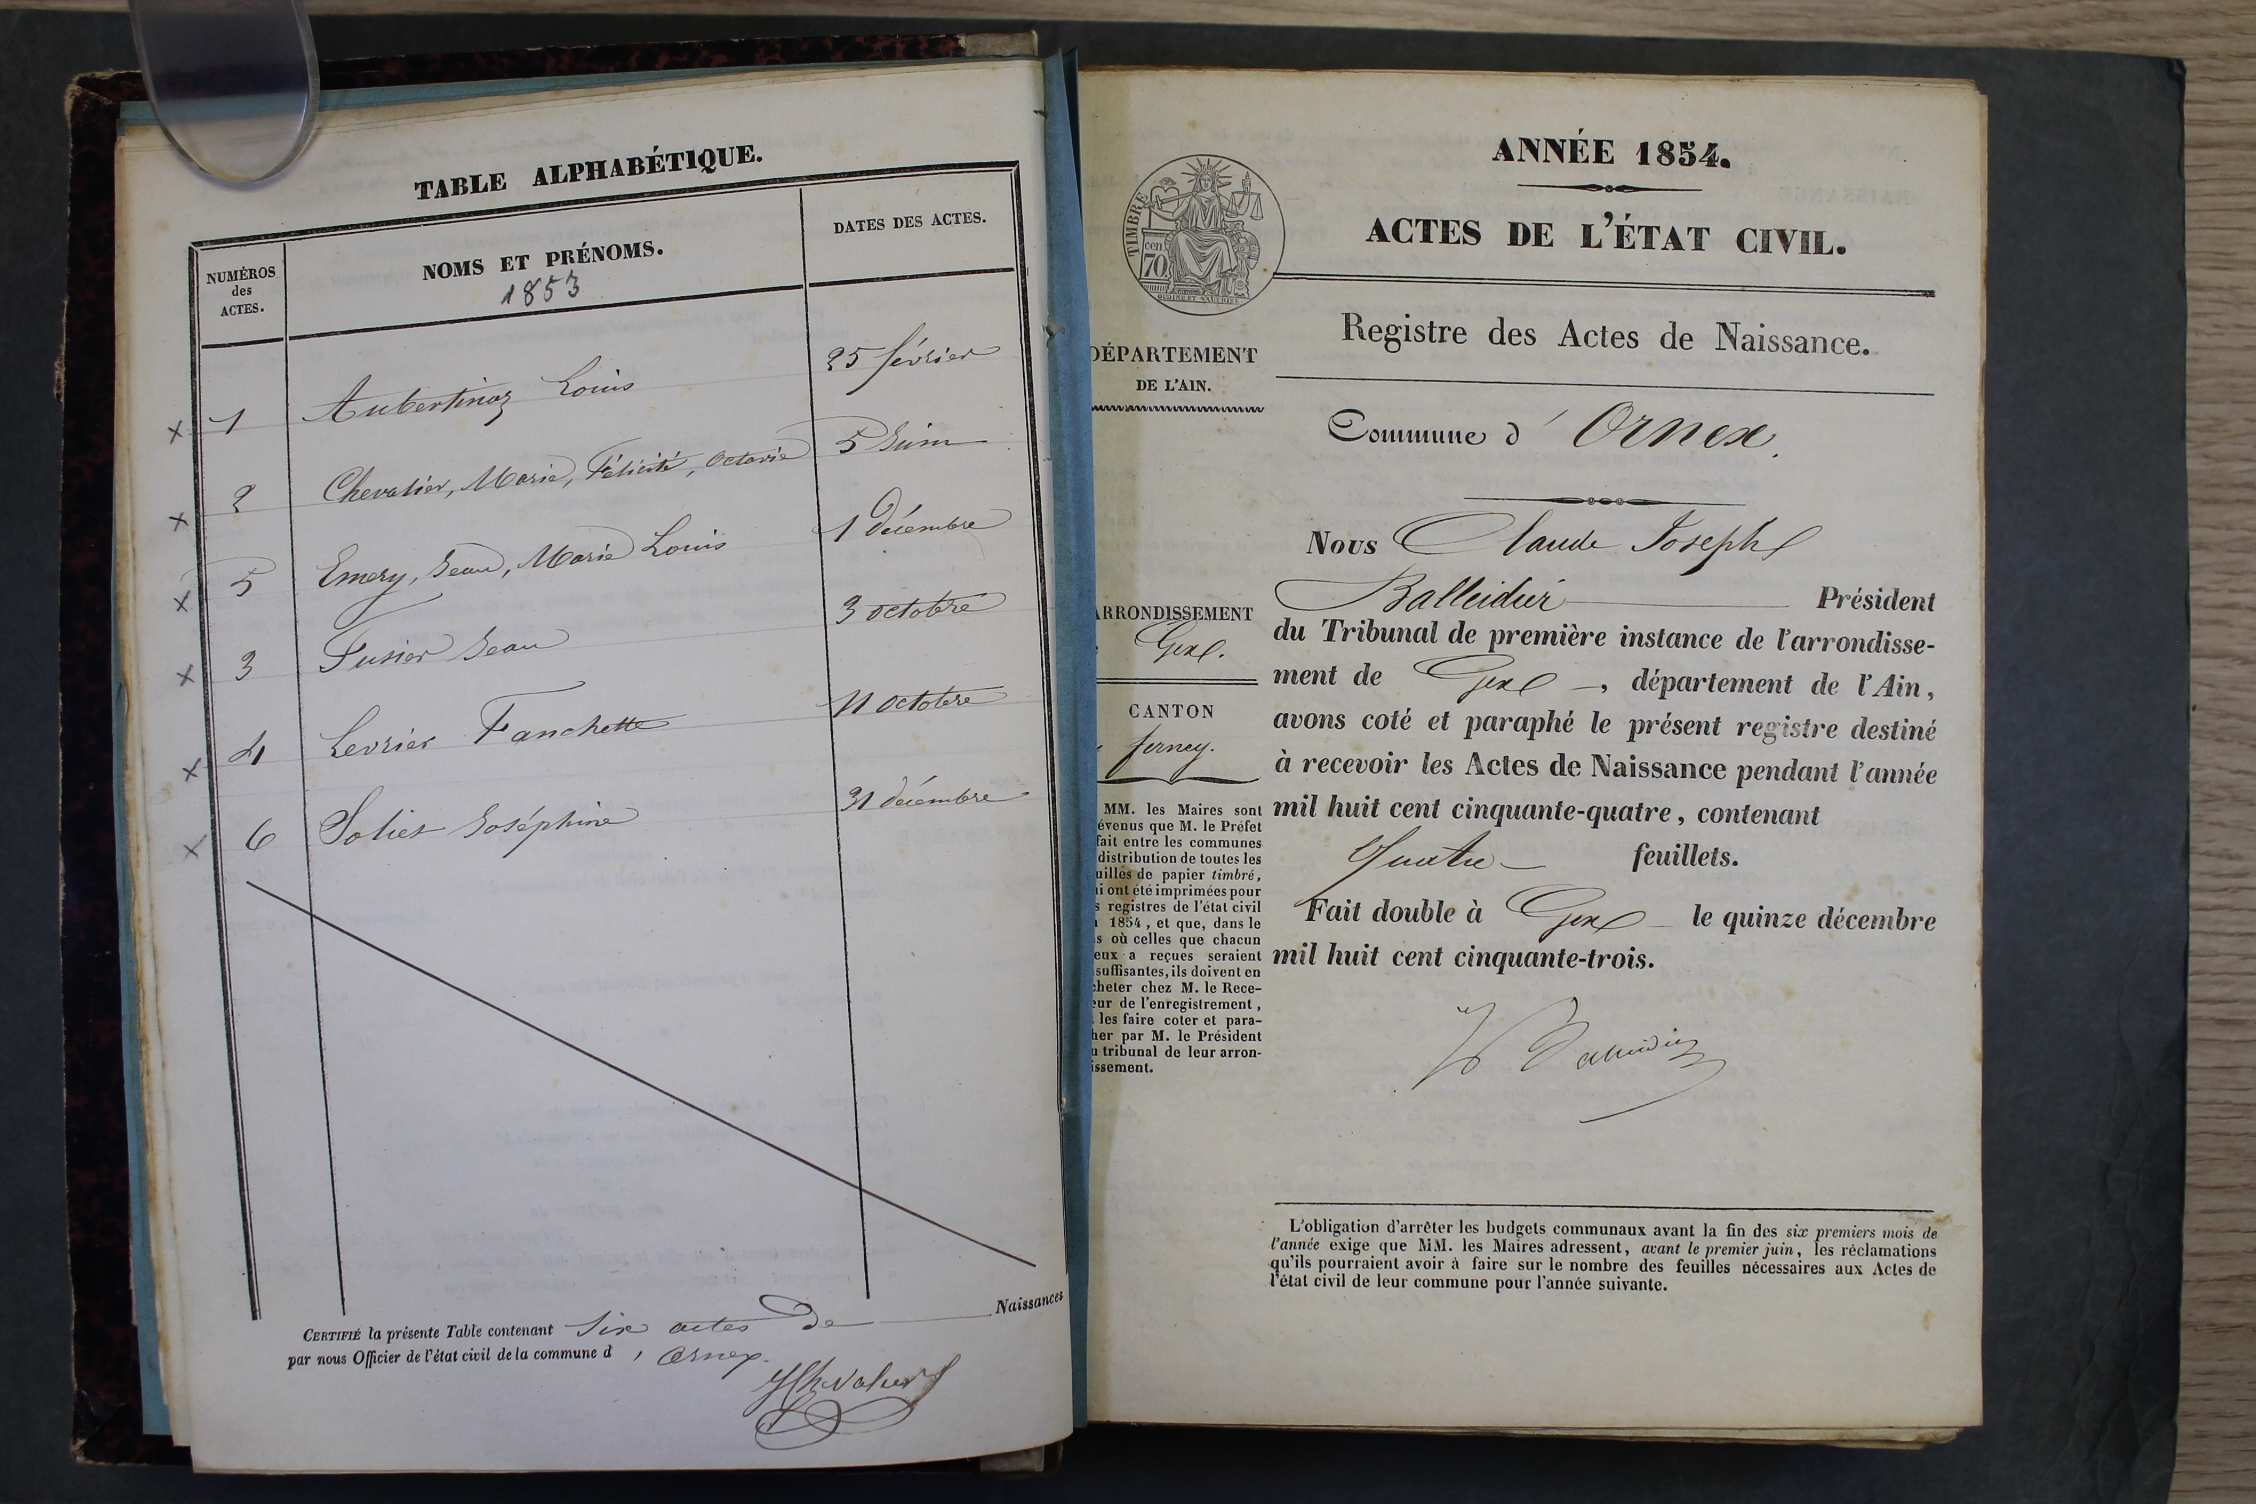 TABLE ALPHABÉTIQUE.
NUMÉROS des ACTES. NOMS ET PRÉNOMS. DATES DES ACTES.
1853
× 1 Aubertinoz Louis 25 février
× 2 Chevalier, Marie, Félicité, Octavie 5 Juin
× 5 Emery, Jean, Marie Louis 1 Décembre
× 3 Fusier Jean 3 octobre
× 4 Levrier Fanchette 11 octobre
× 6 Soliet Joséphine 31 décembre
CERTIFIÉ la présente Table contenant Six actes De Naissances
par nous Officier de l'état civil de la commune d' Ornex.
ANNÉE 1854.
ACTES DE L'ÉTAT CIVIL.
TIMBRE
cen
70
Registre des Actes de Naissance.
DÉPARTEMENT
DE L'AIN.
Commune d' Ornex.
ARRONDISSEMENT
Gex.
CANTON
ferney.
MM. les Maires sont
évenus que M. le Préfet
fait entre les communes
distribution de toutes les
uilles de papier timbré,
ui ont été imprimées pour
s registres de l'état civil
1854, et que, dans le
s où celles que chacun
eux a reçues seraient
suffisantes, ils doivent en
cheter chez M. le Rece-
eur de l'enregistrement,
les faire coter et para-
her par M. le Président
u tribunal de leur arron-
issement.
Nous Claude Joseph
Balleidier Président
du Tribunal de première instance de l'arrondisse-
ment de Gex, département de l'Ain,
avons coté et paraphé le présent registre destiné
à recevoir les Actes de Naissance pendant l'année
mil huit cent cinquante-quatre, contenant
Quatre feuillets.
Fait double à Gex le quinze décembre
mil huit cent cinquante-trois.
L'obligation d'arrêter les budgets communaux avant la fin des six premiers mois de
l'année exige que MM. les Maires adressent, avant le premier juin, les réclamations
qu'ils pourraient avoir à faire sur le nombre des feuilles nécessaires aux Actes de
l'état civil de leur commune pour l'année suivante.